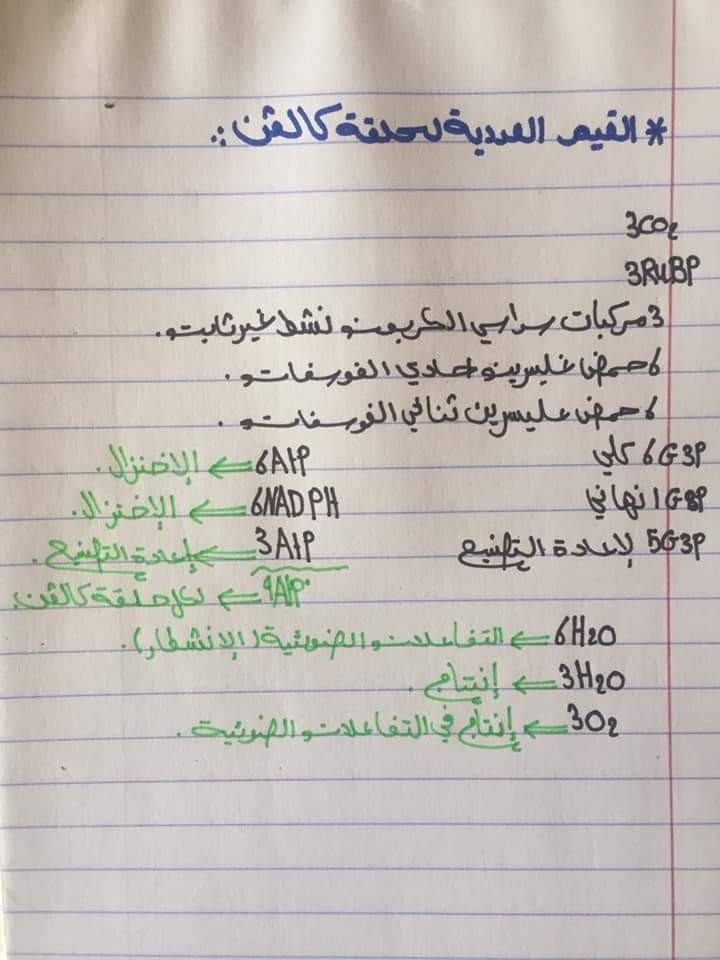 * القيم العددية لحلقة كالڤن :.
3CO2
3RuBP
3 مركبات سداسي الكربون نشط غير ثابت.
6 حمض غليسرين أحادي الفوسفات.
6 حمض غليسرين ثنائي الفوسفات.
6G3P كلي 6ATP ⇐ الإختزال.
1G3P نهائي 6NADPH ⇐ الإختزال.
5G3P لإعادة التصنيع 3ATP ⇐ إعادة التصنيع.
9ATP ⇐ لكل حلقة كالڤن
6H2O ⇐ التفاعلات الضوئية (الإنشطار).
3H2O ⇐ إنتاج.
3O2 ⇐ إنتاج في التفاعلات الضوئية.